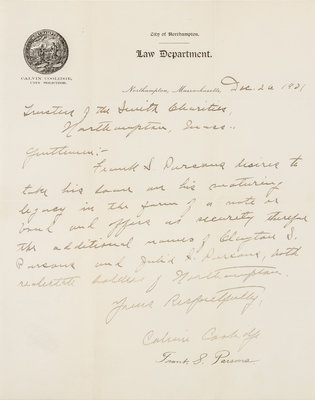 City of Northampton.
Law Department.
CALVIN COOLIDGE,
CITY SOLICITOR.
Northampton, Massachusetts, Dec. 26 1901
Trustees of the Smith Charities,
Northampton, Mass.
Gentlemen:-
Frank S. Parsons desires to
take his loan on his maturing
legacy in the form of a note or
bond and offers as security therefor
the additional names of Clayton S.
Parsons and Julia S. Parsons, both
realestate holders of Northampton.
Yours Respectfully,
Calvin Coolidge
Frank S. Parsons